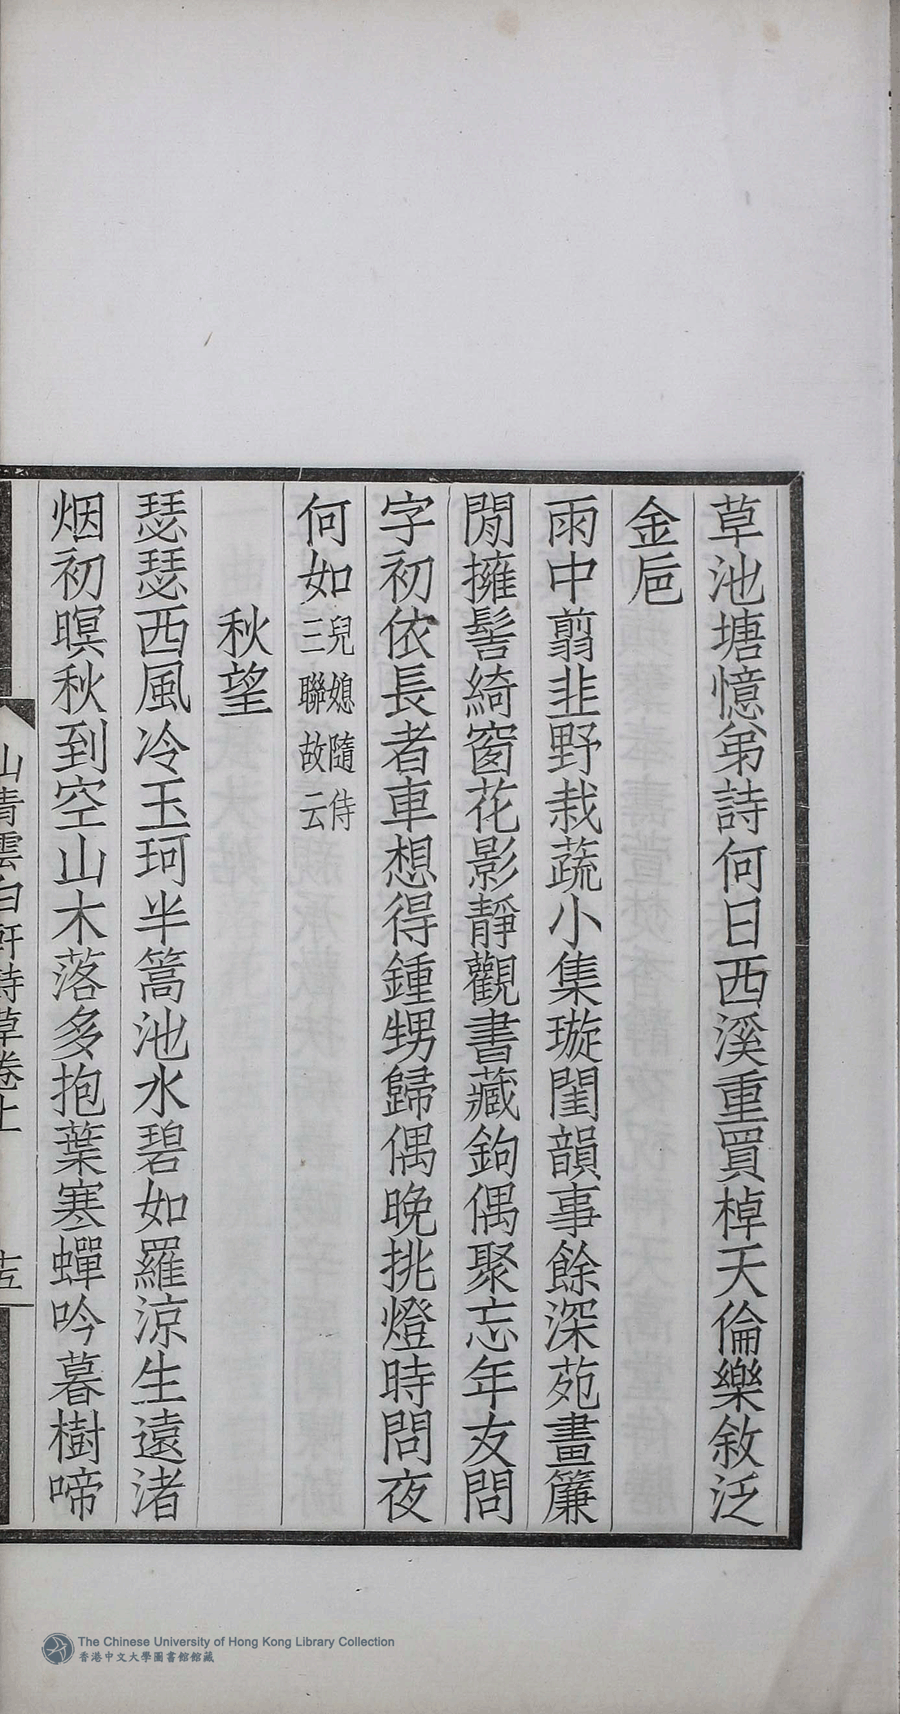 草池塘憶弟詩何日西溪重買棹天倫樂敘泛
金卮
雨中翦韭野栽蔬小集璇閨韻事餘深苑晝簾
閒擁髻綺窗花影靜觀書藏鉤偶聚忘年友問
字初依長者車想得鍾甥歸偶晚挑燈時問夜
何如兒媳隨侍
三聯故云
秋望
瑟瑟西風冷玉珂半篙池水碧如羅涼生遠渚
烟初暝秋到空山木落多抱葉寒蟬吟暮樹啼
山青雲白軒詩草卷上
The Chinese University of Hong Kong Library Collection
香港中文大學圖書館館藏